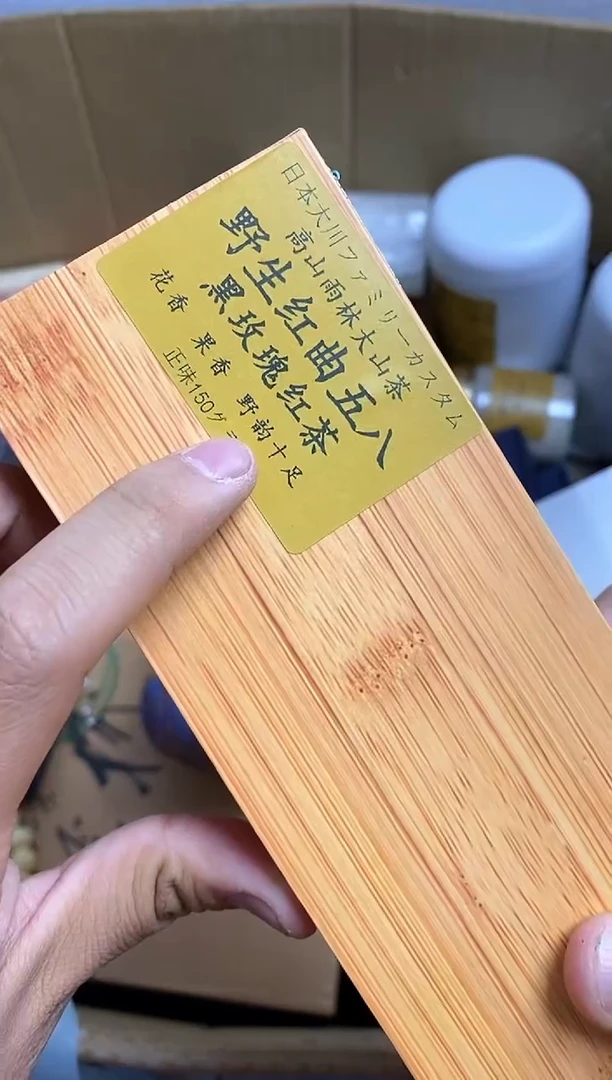 日本大川ファミリーカスタム
高山雨林大山茶
野生红曲五八
黑玫瑰红茶
花香 果香 野韵十足
正味150グ